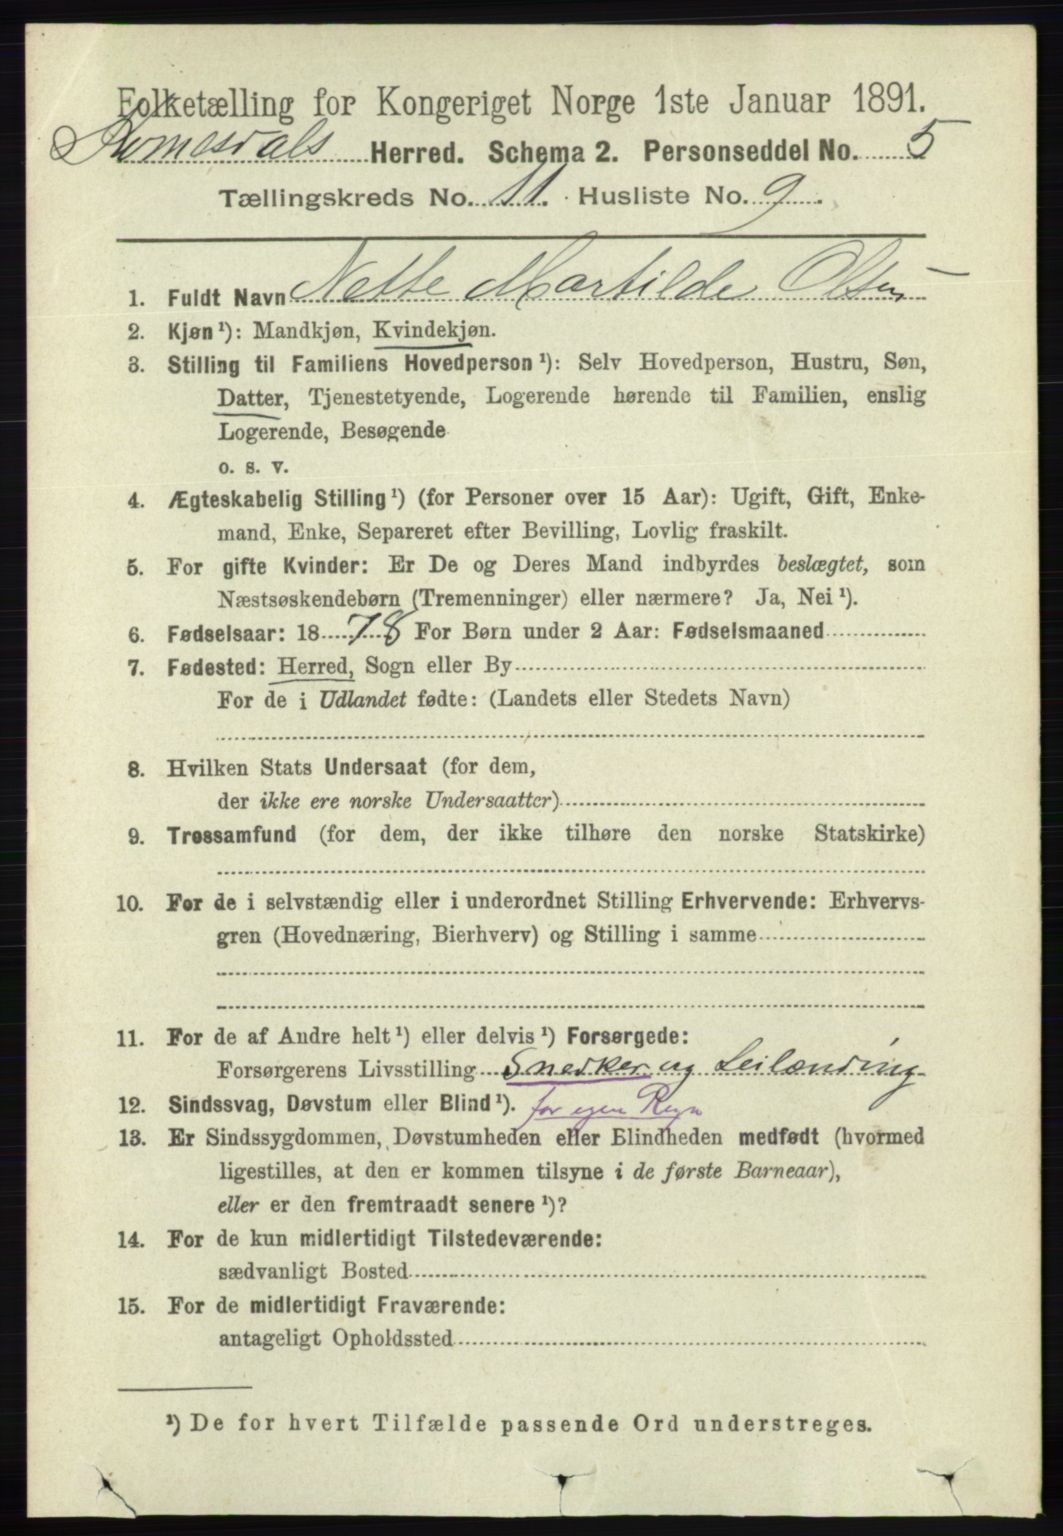 Folketælling for Kongeriget Norge 1ste Januar 1891.
Komesdals Herred. Schema 2. Personseddel No. 5
Tællingskreds No. 11. Husliste No. 9.
1. Fuldt Navn Nette Martilde Olsen
2. Kjøn¹): Mandkjøn, Kvindekjøn.
3. Stilling til Familiens Hovedperson¹): Selv Hovedperson, Hustru, Søn,
Datter, Tjenestetyende, Logerende hørende til Familien, enslig
Logerende, Besøgende
o. s. v.
4. Ægteskabelig Stilling¹) (for Personer over 15 Aar): Ugift, Gift, Enke-
mand, Enke, Separeret efter Bevilling, Lovlig fraskilt.
5. For gifte Kvinder: Er De og Deres Mand indbyrdes beslægtet, som
Næstsøskendebørn (Tremenninger) eller nærmere? Ja, Nei¹).
6. Fødselsaar: 1878 For Børn under 2 Aar: Fødselsmaaned
7. Fødested: Herred, Sogn eller By
For de i Udlandet fødte: (Landets eller Stedets Navn)
8. Hvilken Stats Undersaat (for dem,
der ikke ere norske Undersaatter)
9. Trossamfund (for dem, der ikke tilhøre den norske Statskirke)
10. For de i selvstændig eller i underordnet Stilling Erhvervende: Erhvervs-
gren (Hovednæring, Bierhverv) og Stilling i samme
11. For de af Andre helt¹) eller delvis¹) Forsørgede:
Forsørgerens Livsstilling Snedker og Leilænding
12. Sindssvag, Døvstum eller Blind¹). for egen Regn
13. Er Sindssygdommen, Døvstumheden eller Blindheden medfødt (hvormed
ligestilles, at den er kommen tilsyne i de første Barneaar),
eller er den fremtraadt senere¹)?
14. For de kun midlertidigt Tilstedeværende:
sædvanligt Bosted
15. For de midlertidigt Fraværende:
antageligt Opholdssted
¹) De for hvert Tilfælde passende Ord understreges.